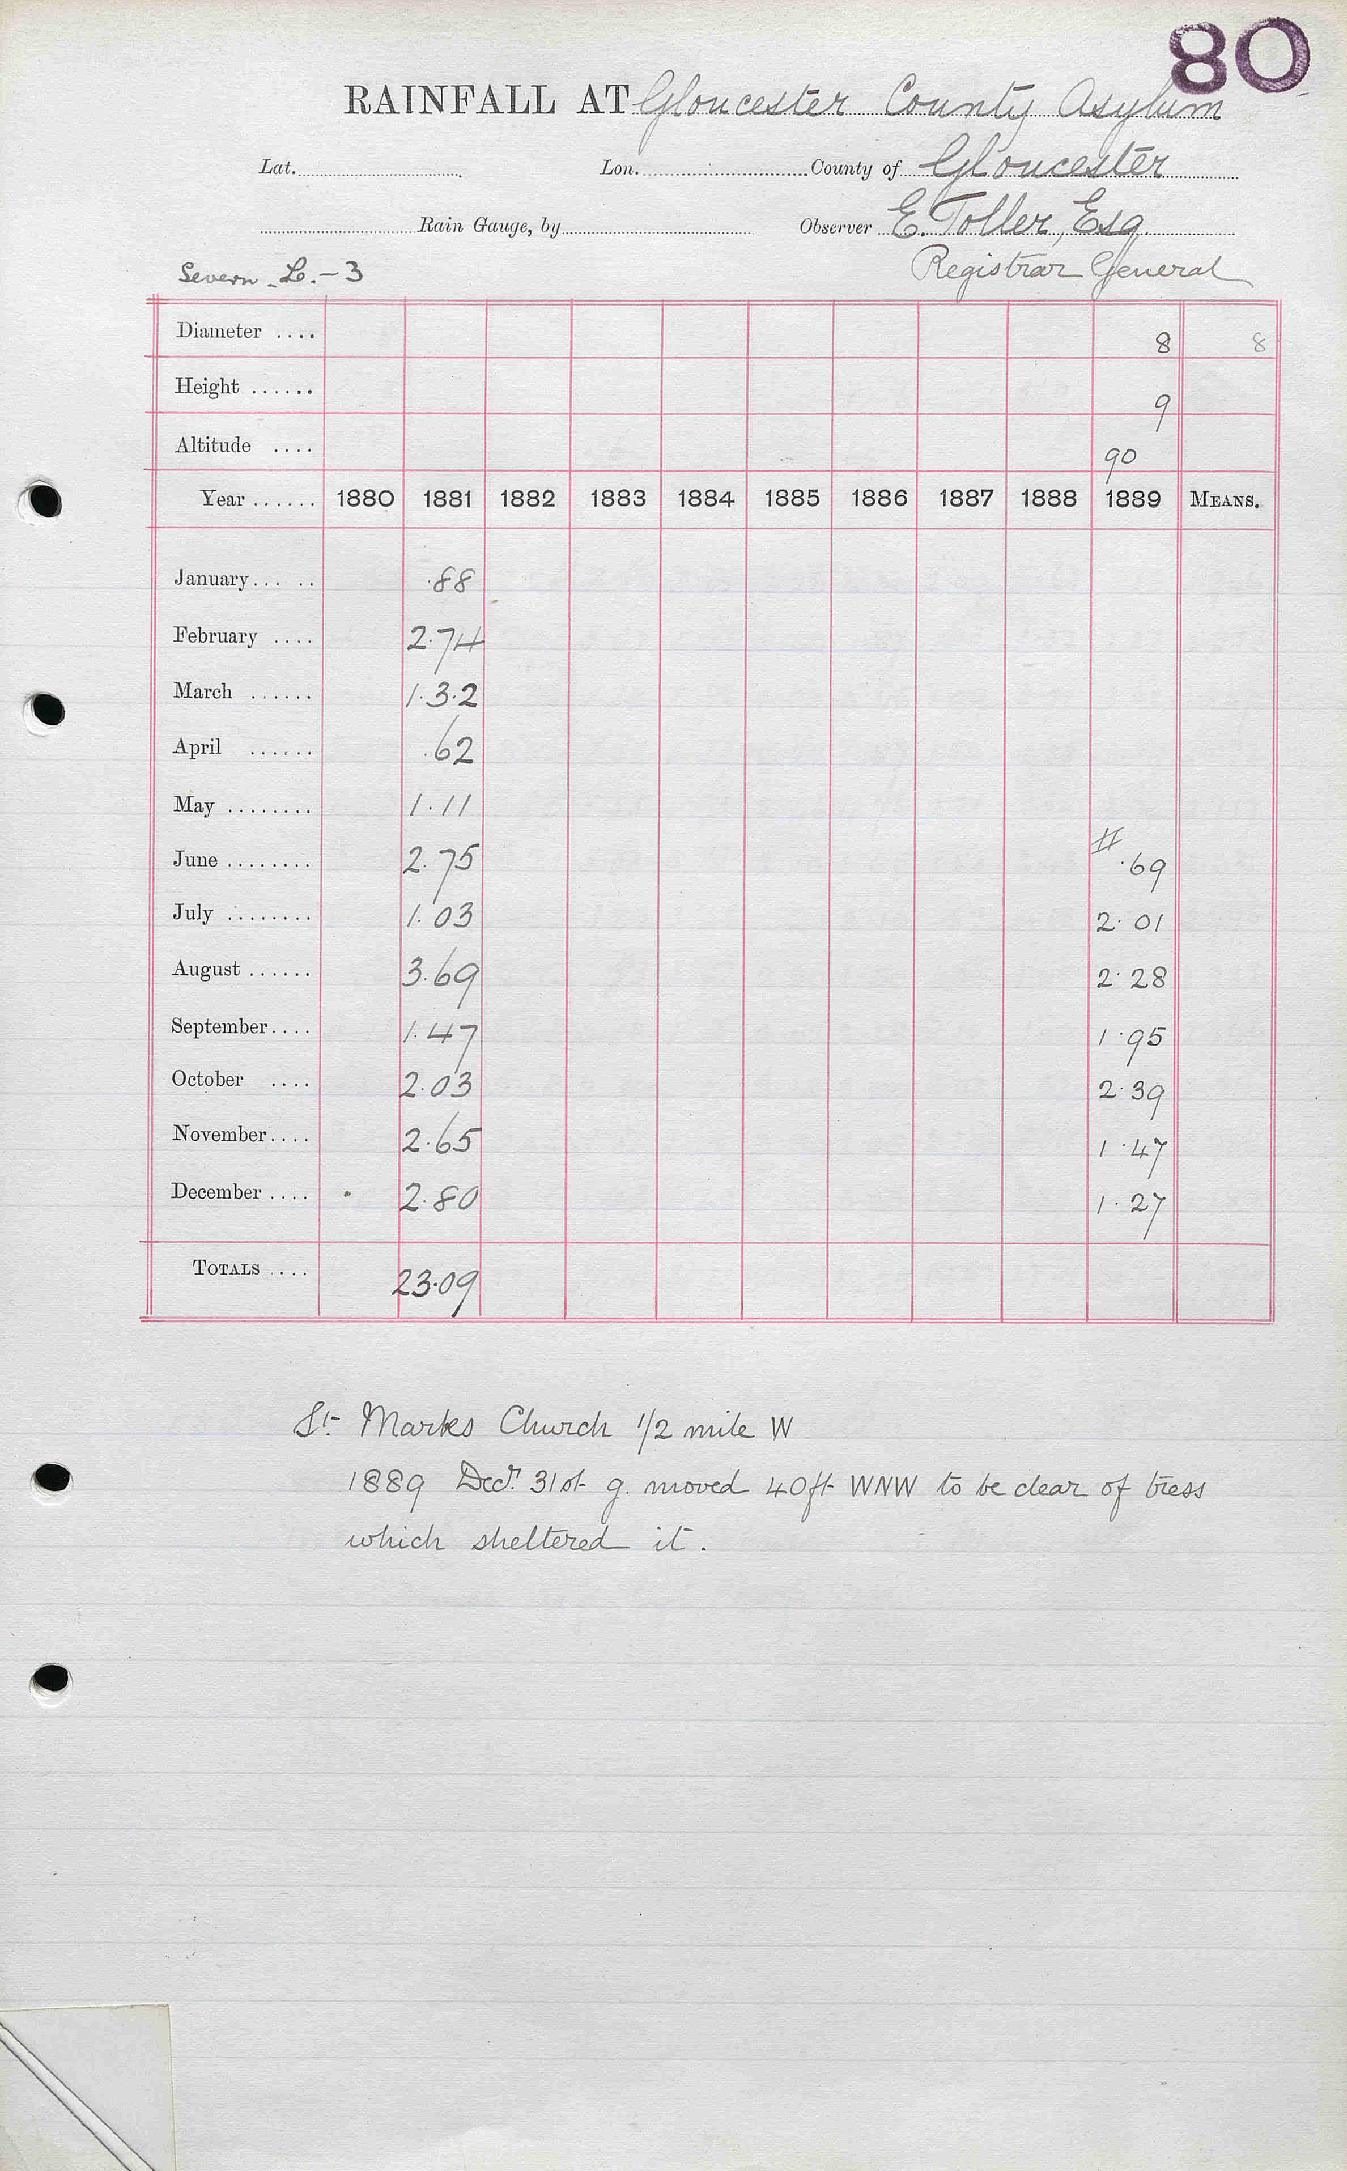 80
RAINFALL AT Gloucester County Asylum
Lat. Lon. County of Gloucester
Rain Gauge, by Observer E. Toller, Esq
Severn - L. - 3 Registrar General
Diameter .... 8 8
Height ...... 9
Altitude .... 90
Year ...... 1880 1881 1882 1883 1884 1885 1886 1887 1888 1889 MEANS.
January... .. .88
February .... 2.74
March ...... 1.3.2
April ...... .62
May ........ 1.11
June ........ 2.75 # .69
July ........ 1.03 2.01
August ...... 3.69 2.28
September.... 1.47 1.95
October .... 2.03 2.39
November.... 2.65 1.47
December .... 2.80 1.27
TOTALS .... 23.09
St Marks Church 1/2 mile W
1889 Decr 31st g. moved 40ft WNW to be clear of tress
which sheltered it.